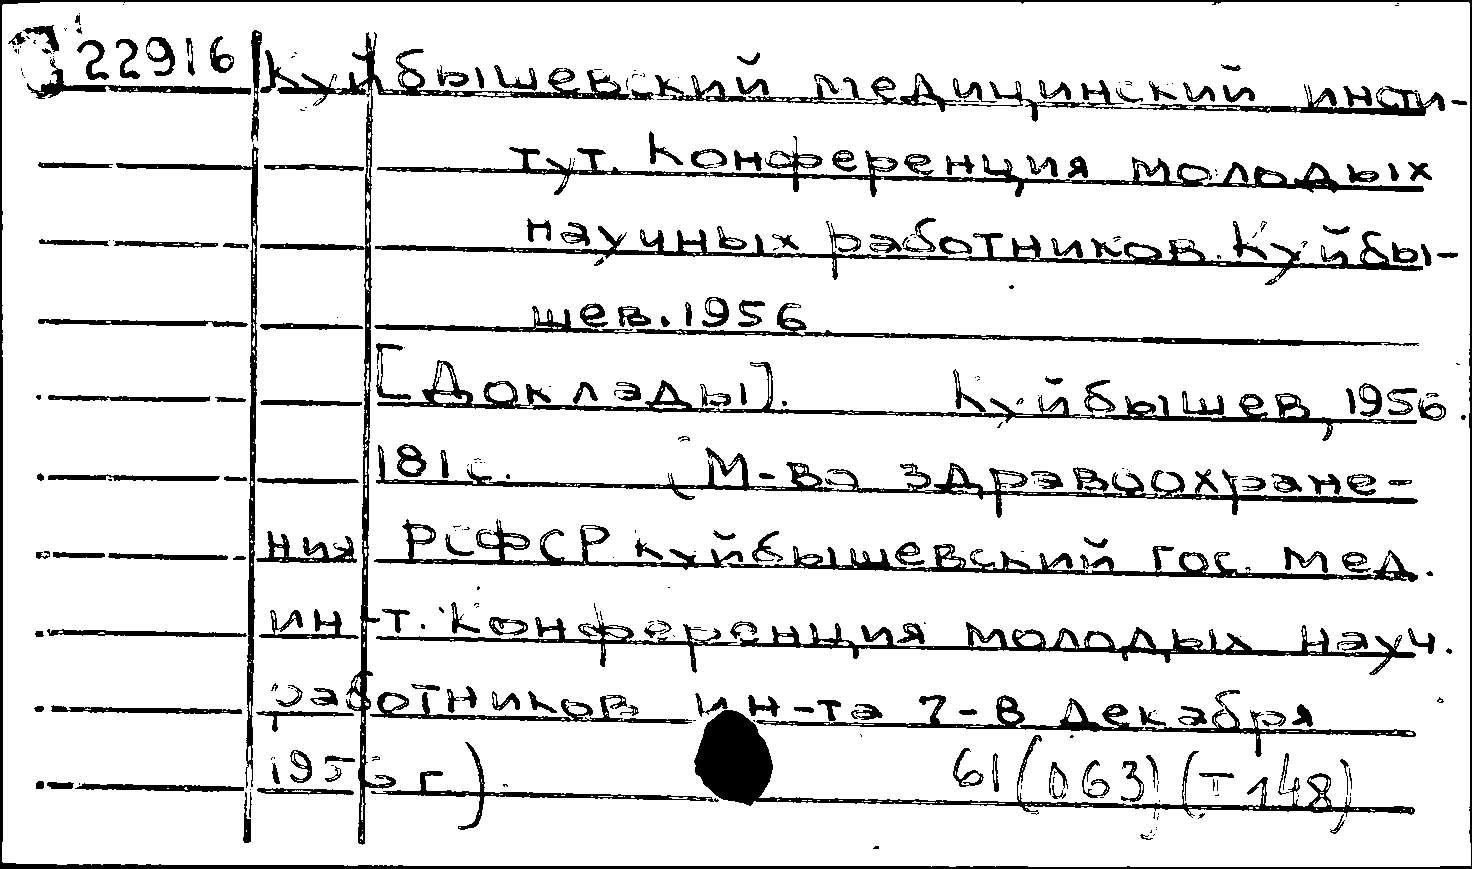 22916 Куйбышевский медицинский инсти-
тут. Конференция молодых
научных работников. Куйбы-
шев. 1956
[Доклады]. Куйбышев, 1956.
181 с. (М-ва здравоохране-
ния РСФСР куйбышевский гос. мед.
ин-т. Конференция молодых науч.
работников ин-та 7-8 декабря
1956 г) 61(063)(Т148)